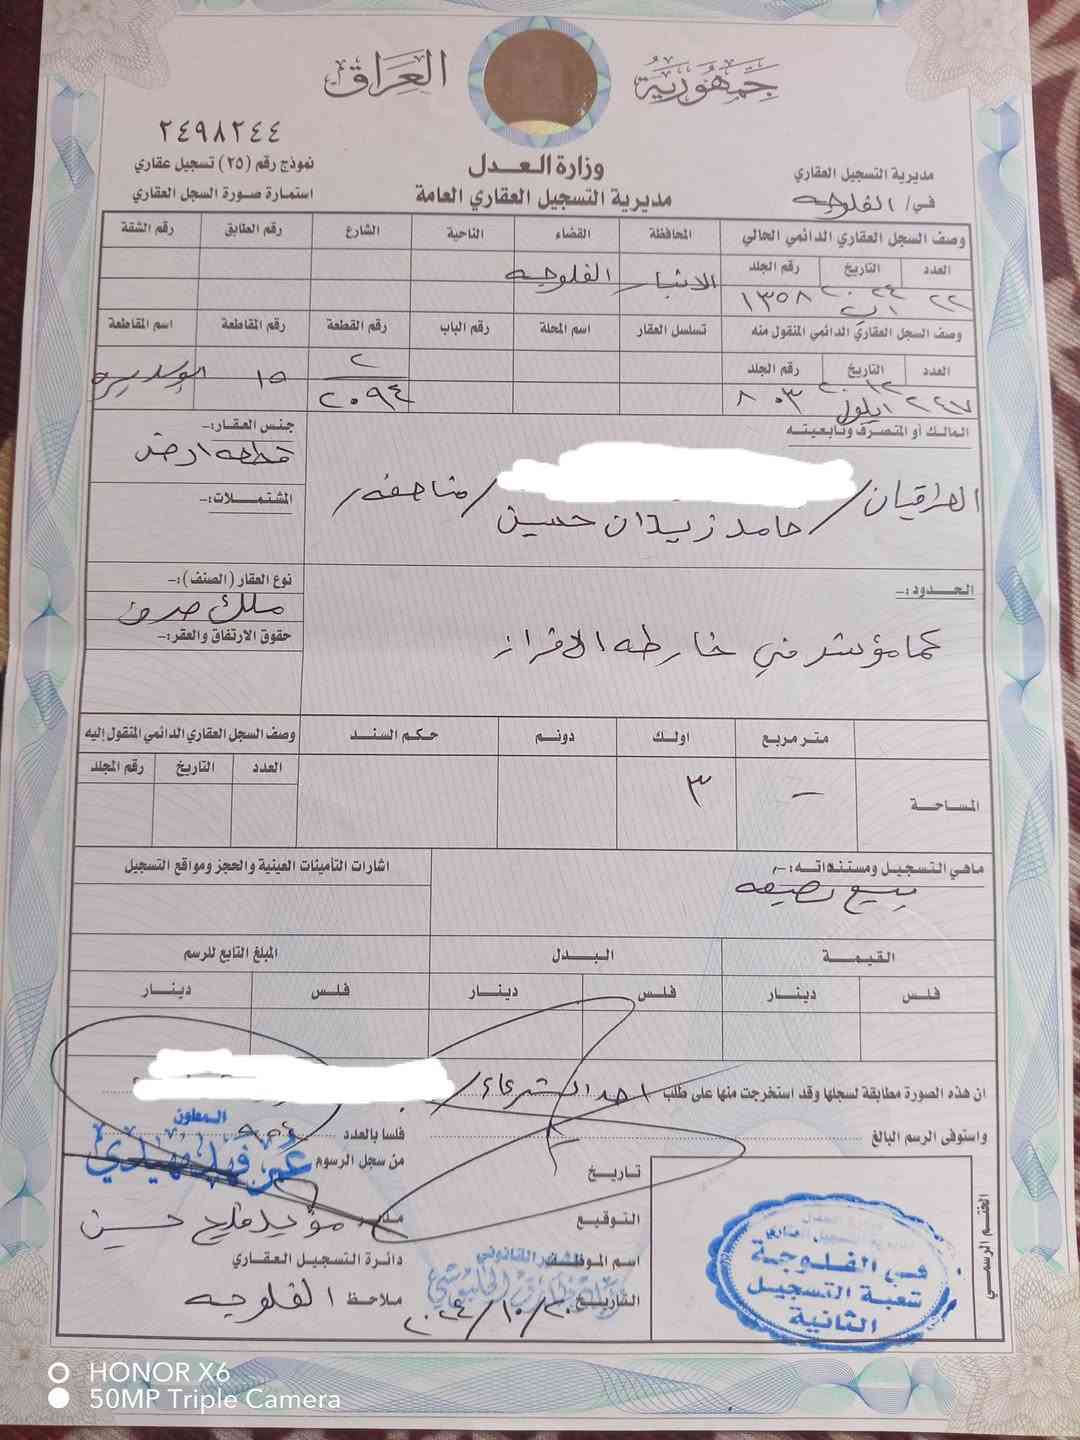 جمهورية العراق
٢٤٩٨٢٤٤
وزارة العدل
مديرية التسجيل العقاري العامة
مديرية التسجيل العقاري
في/ الفلوجه
نموذج رقم (٢٥) تسجيل عقاري
استمارة صورة السجل العقاري
وصف السجل العقاري الدائمي الحالي المحافظة القضاء الناحية الشارع رقم الطابق رقم الشقة
العدد التاريخ رقم الجلد
٢٢ اب ٢٠٢٤ ١٣٥٨ الانبار الفلوجه
وصف السجل العقاري الدائمي المنقول منه تسلسل العقار اسم المحلة رقم الباب رقم القطعة رقم المقاطعة اسم المقاطعة
العدد التاريخ رقم الجلد
٢٤٧ ايلول ٢٠١٢ ٨٠٣ ٢/٢٠٩٤ ١٥
المالك أو المتصرف وتابعيته
العراقيان/ /مناصفه/
حامد زيدان حسين
جنس العقار:-
قطعه ارض
المشتملات:-
نوع العقار (الصنف):-
ملك صرف
حقوق الارتفاق والعقر:-
الحدود:-
كما مؤشر في خارطه الافراز
متر مربع اولك دونم حكم السند وصف السجل العقاري الدائمي المنقول إليه
العدد التاريخ رقم المجلد
المساحة - ٣
ماهي التسجيل ومستنداته:- اشارات التأمينات العينية والحجز ومواقع التسجيل
بيع
القيمة البدل المبلغ التابع للرسم
فلس دينار فلس دينار فلس دينار
ان هذه الصورة مطابقة لسجلها وقد استخرجت منها على طلب احد الشركاء/
واستوفى الرسم البالغ فلسا بالعدد
تاريخ من سجل الرسوم
المعاون
عمر فهد مهيدي
التوقيع مدير مؤيد فليح حسين
اسم الموظف دائرة التسجيل العقاري
المشاور القانوني
التاريخ ٢٠٢٤/١٠/٢٠ ملاحظ الفلوجه
الختم الرسمي
في الفلوجة
شعبة التسجيل
الثانية
HONOR X6
50MP Triple Camera